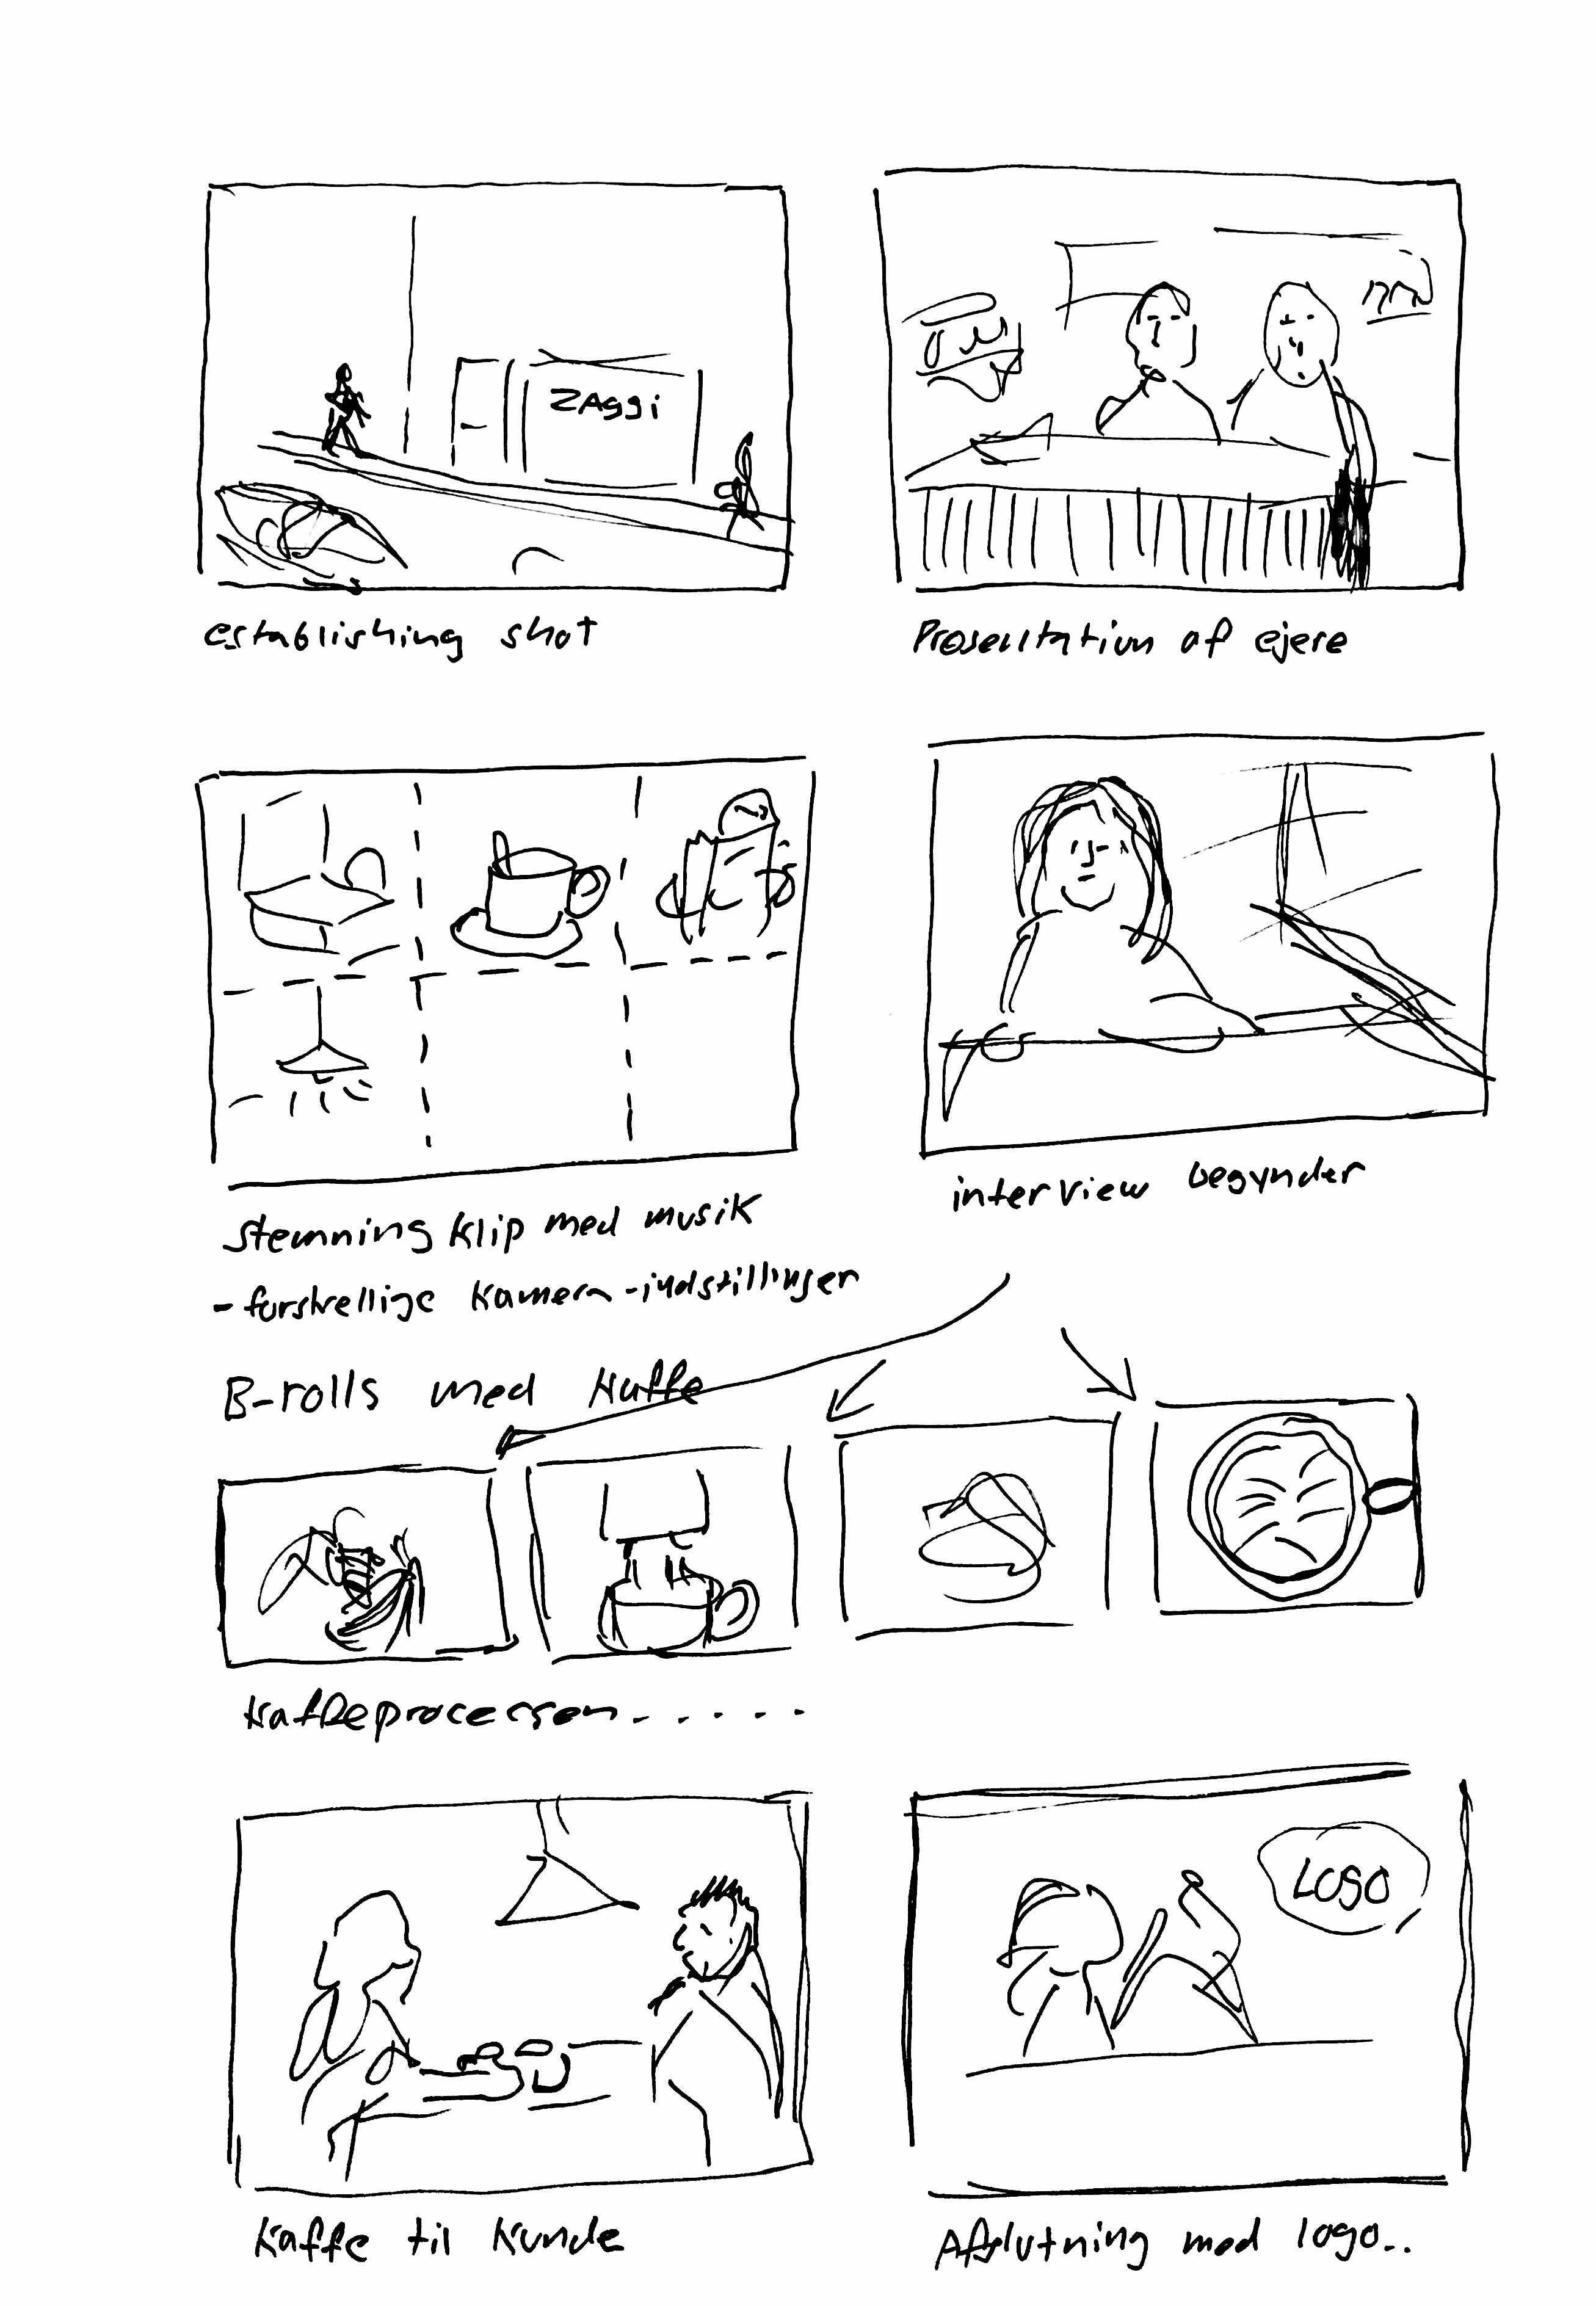 ZAggi
establishing shot
Præsentation af ejere
stemning klip med musik
- forskellige kamera-indstillinger
interview begynder
B-rolls med kaffe
kaffeprocessen......
LOGO
kaffe til kunde
Afslutning med logo..